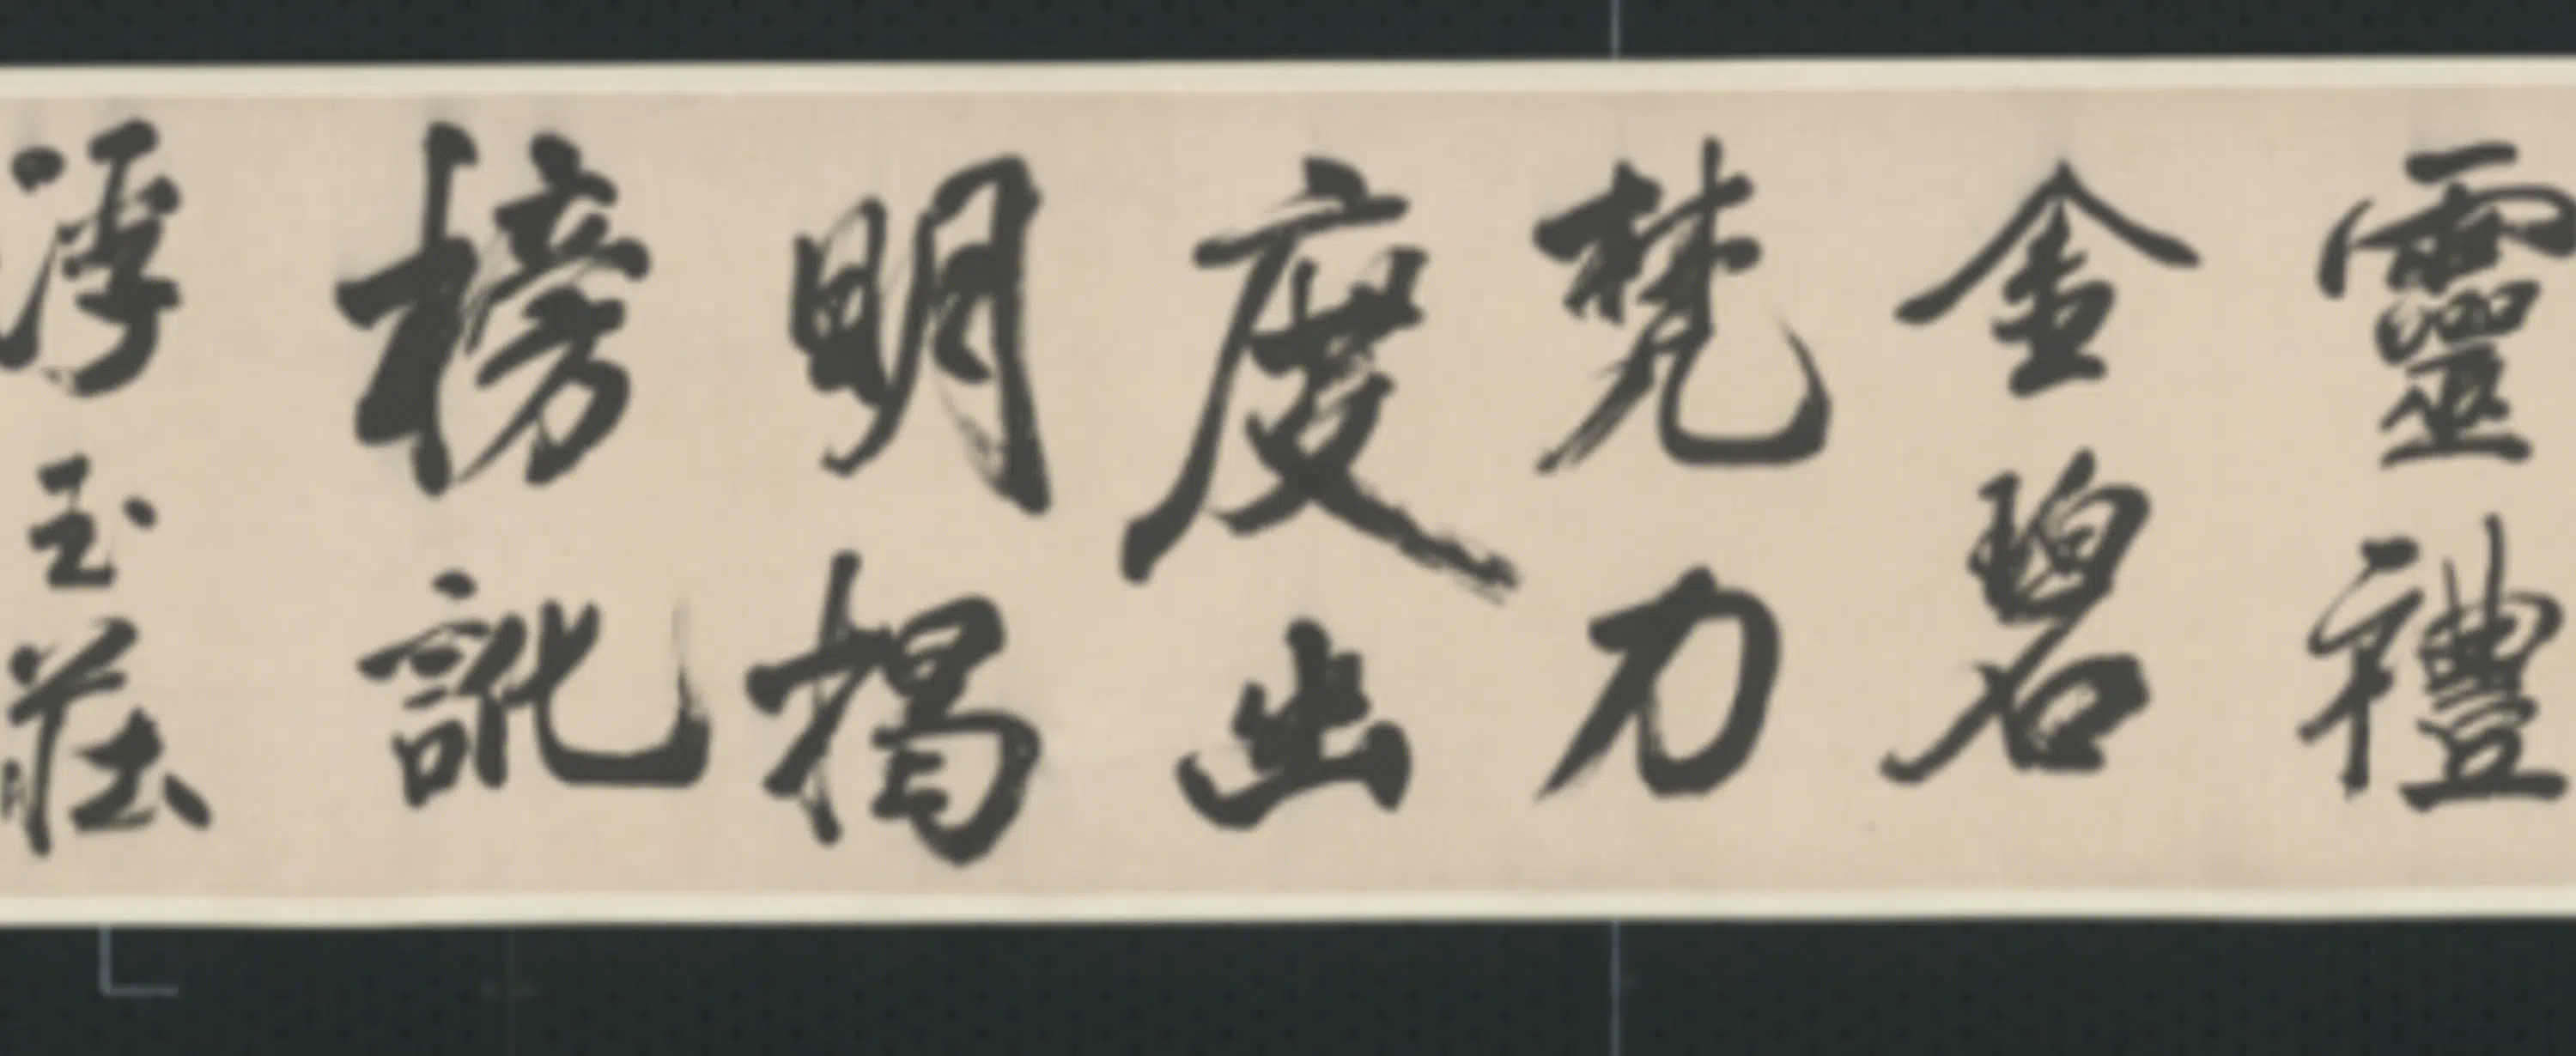 靈禮
金碧
梵力
度出
明揭
榜訛
浮玉莊